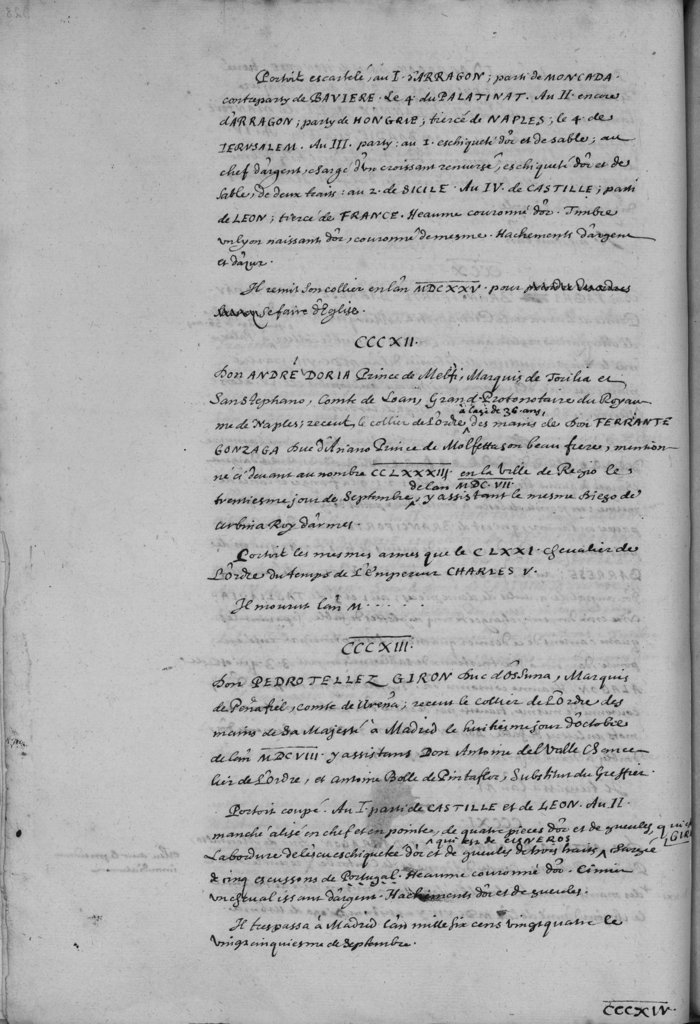 Portoit escartelé, au I. d'ARRAGON; parti de MONCADA.
contreparty de BAVIERE. Le 4. du PALATINAT. Au II. encore
d'ARRAGON; party de HONGRIE; tiercé de NAPLES; le 4. de
IERUSALEM. Au III. party: au 1. eschiqueté d'or et de sable; au
chef d'argent, chargé d'un croissant renversé, eschiqueté d'or et de
sable, de deux traits: au 2. de SICILE. Au IV. de CASTILLE; parti
de LEON; tiercé de FRANCE. Heaume couronné d'or. Timbre
un lyon naissant d'or, couronné de mesme. Hachements d'argent
et d'azur.
Il remit son collier en l'an MDCXXV. pour
se faire d'Eglise.
CCCXII.
Don ANDRÉ DORIA Prince de Melfi, Marquis de Torilia et
San Stephano, Comte de Loani, Grand-Protonotaire du Royau-
me de Naples; receut le collier de L'ordre, à l'age de 36. ans, des mains de Don FERRANTE
GONZAGA Duc d'Ariano Prince de Molfetta son beau frere, mention-
né ci devant au nombre CCLXXXIII. en la Ville de Regio le
trentiesme jour de Septembre, de l'an MDC.VII. y assistant le mesme Diego de
Urbina Roy d'armes.
Portoit les mesmes armes que le CLXXI. chevalier de
L'ordre du temps de L'Empereur CHARLES V.
Il mourut l'an M . . . . .
CCCXIII.
Don PEDRO TELLEZ GIRON Duc d'Ossuna, Marquis
de Peñafiel, comte de Ureña; receut le collier de L'ordre des
mains de Sa Majesté à Madrid le huitiesme jour d'octobre
de l'an MDCVIII. y assistans Don Antoine del Valle Chance-
lier de L'ordre, et Antoine Bolle de Pintaflor, Substitut du Greffier.
Portoit coupé. Au I. parti de CASTILLE et de LEON. Au II.
manché alisé en chef et en pointe, de quatre pieces d'or et de gueules, qui est GIRON
La bordure de l'escu eschiquetée d'or et de gueules de trois traits, qui est de CISNEROS chargée
de cinq escussons de Portugal. Heaume couronné d'or. Cimier
un cheval issant d'argent. Hachements d'or et de gueules.
Il trespassa à Madrid l'an mille six cens vingtquatre le
vingtcinquiesme de Septembre.
CCCXIV